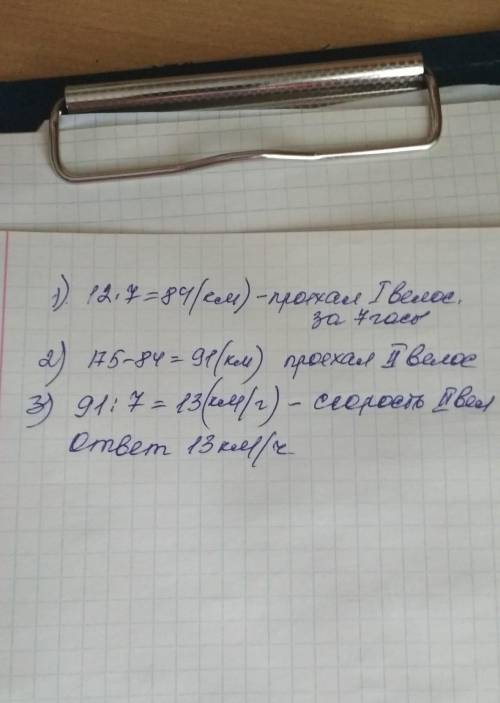 1) 12·7=84(км) - проехал I велос.
за 7 часы
2) 175-84=91(км) проехал II велос
3) 91:7=13(км/г) - скорость II вел
Ответ 13км/ч